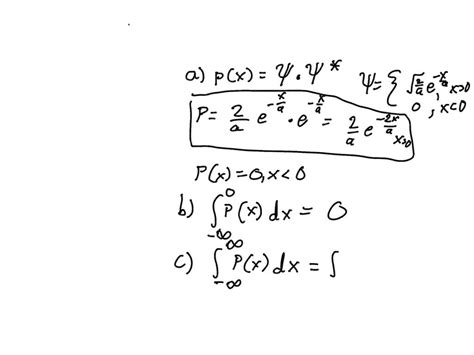 a) p(x) = Ψ · Ψ*   Ψ = { √(2/a) e^(-x/a), x>0
0, x<0
P = 2/a e^(-x/a) · e^(-x/a) = 2/a e^(-2x/a) x>0
P(x) = 0, x < 0
b) ∫_{-∞}^{0} P(x) dx = 0
c) ∫_{-∞}^{∞} P(x) dx = ∫